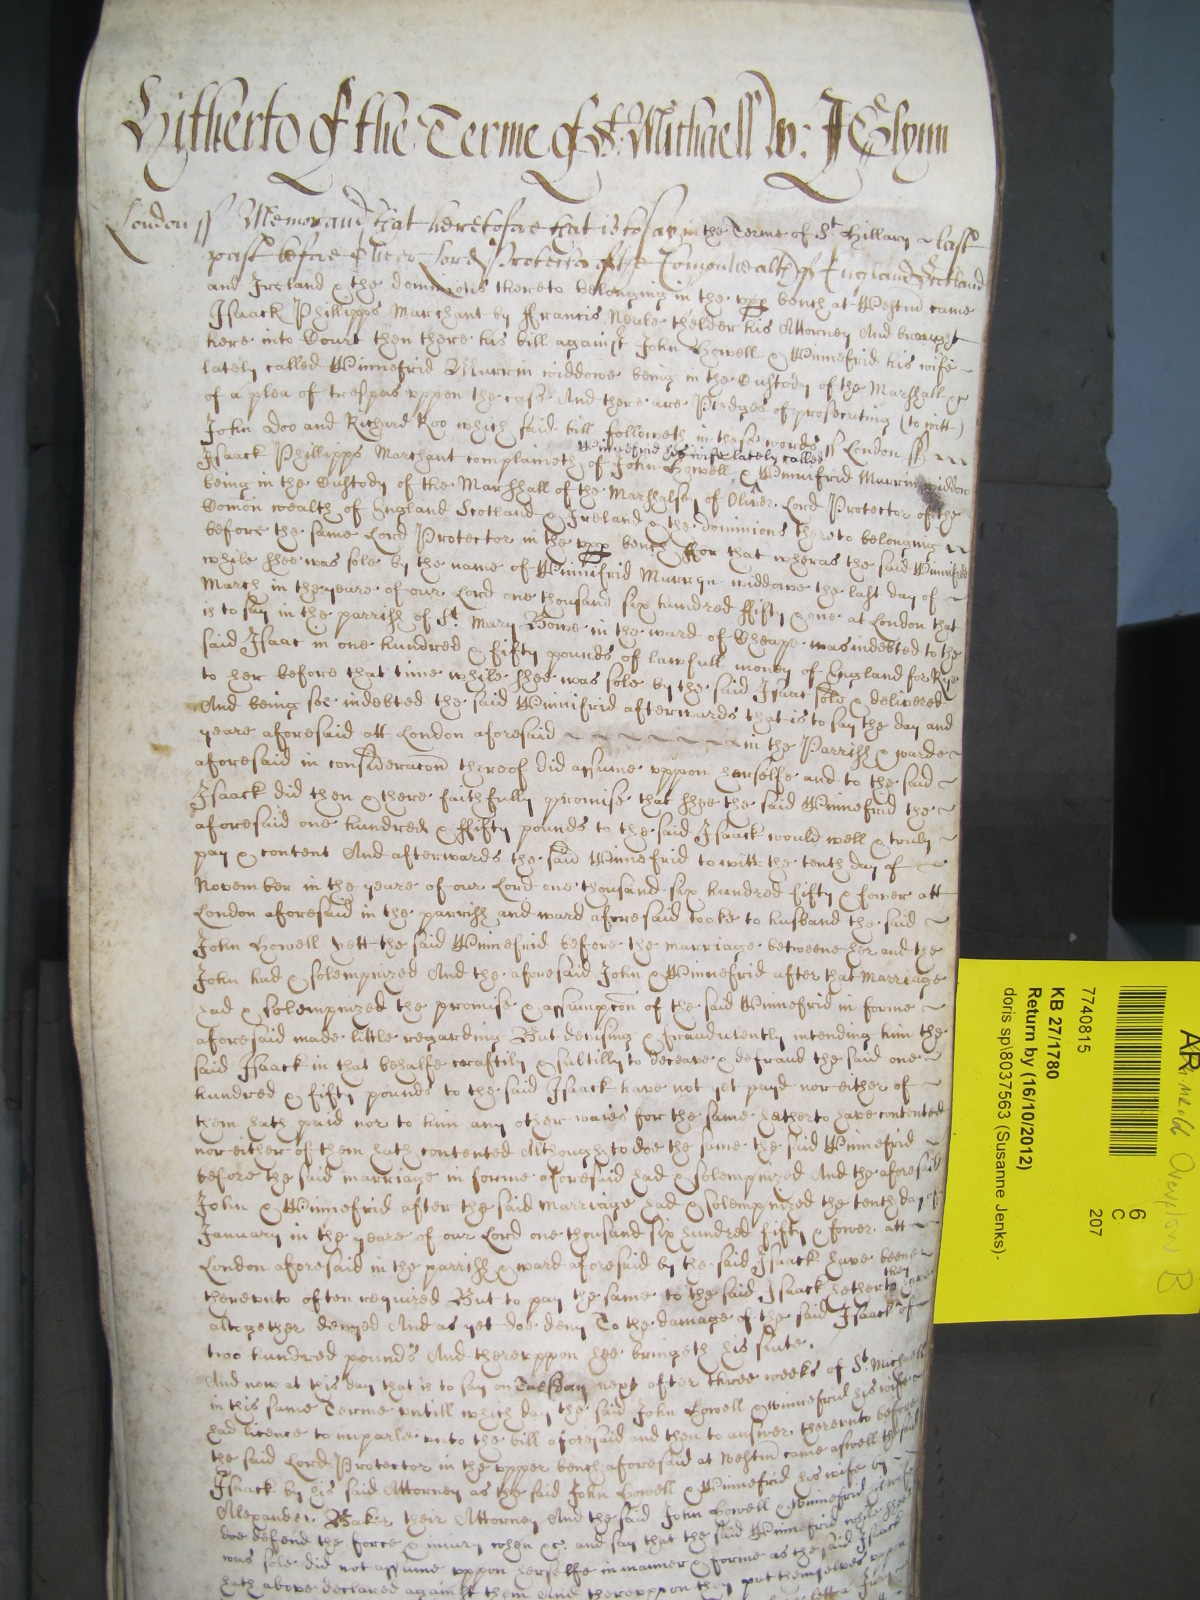 Hitherto of the Terme of St. Michaell w: J Glynn
London ss Memorand that heretofore that is to say in the Terme of St Hillary last
past before Lord Protector of the Comonwealth of England Scotland
and Ireland & the dominions thereto belonging in the upp bench at Westm came
Isaack Phillipps Marchant by ffrancis Neale thelder his Attorney And brought
here into Court then there his bill against John Howell & Winnefrid his wife
lately called Winnefrid Murrin widdowe being in the Custody of the Marshall &c
of a plea of trespas uppon the case And there are Pledges of prosecuting (to witt)
John Doo and Richard Roo which said bill followeth in these words ss London ss
Winnefrid his wife lately called
Isaack Phillipps Marchant complaineth of John Howell & Winnifrid Murrin widdow
being in the Custody of the Marshall of the Marshalsey of Oliver Lord Protector of the
Comon wealth of England Scotland & Ireland & the dominions thereto belonging
before the same Lord Protector in the upp bench ffor that wheras the said Winnifrid
while shee was sole by the name of Winnifrid Murryn widdowe the last day of
March in the yeare of our Lord one thousand six hundred ffifty & one at London that
is to say in the parrish of St. Mary Bowe in the ward of Cheape was indebted to the
said Isaac in one hundred & fifty pounds of lawfull money of England for Rye
to her before that time while shee was sole by the said Isaac sold & delivered
And being soe indebted the said Winnifrid afterwards that is to say the day and
yeare aforesaid att London aforesaid in the Parrish & warde
aforesaid in consideracon thereof did assume uppon herselfe and to the said
Isaack did then & there faithfully promise that shee the said Winnefrid the
aforesaid one hundred & ffifty pounds to the said Isaack would well & truly
pay & content And afterwards the said Winnefrid to witt the tenth day of
November in the yeare of our Lord one thousand six hundred fifty & fower att
London aforesaid in the parrish and ward aforesaid tooke to husband the said
John Howell yett the said Winnefrid before the marriage betweene her and the
John had & solempnized And the aforesaid John & Winnefrid after that Marriage
had & solempnized the promise & assumpcon of the said Winnefrid in forme
aforesaid made little regarding But devising & fraudulently intending him the
said Isaack in that behalfe craftily & subtilly to deceave & defraud the said one
hundred & fifty pounds to the said Isaack have not yet payd nor either of
them hath paid nor to him any other waies for the same hetherto have contented
nor either of them hath contented Although to doe the same the said Winnefrid
before the said marriage in forme aforesaid had & solempnized And the aforesaid
John & Winnefrid after the said Marriage had & solempnized the tenth day of
January in the yeare of our Lord one thousand six hundred fifty & fower att
London aforesaid in the parrish & ward aforesaid by the said Isaack have beene
thereunto often required But to pay the same to the said Isaack they hetherto have
altogether denyed And as yet doe deny To the damage of the said Isaack of
two hundred pounds And thereuppon hee bringeth his suite.
And now at this day that is to say on Tuesday next after three weeks of St. Michaell
in this same Terme untill which day the said John Howell & Winnefrid his wife
had licence to imparle unto the bill aforesaid and then to answer thereunto before
the said Lord Protector in the upper bench aforesaid at Westm came aswell the said
Isaack by his said Attorney as the said John Howell & Winnefrid his wife by
Alexander Baker their Attorney And the said John Howell & Winnefrid his wife
doe defend the force & iniury when &c. and say that the said Winnefrid while shee
was sole did not assume uppon herselfe in manner & forme as the said Isaack
hath above declared against them And thereuppon they put themselves upon
7740815
207
KB 27/1780
6
C
Return by (16/10/2012)
doris sp\8037563 (Susanne Jenks).
AR
B